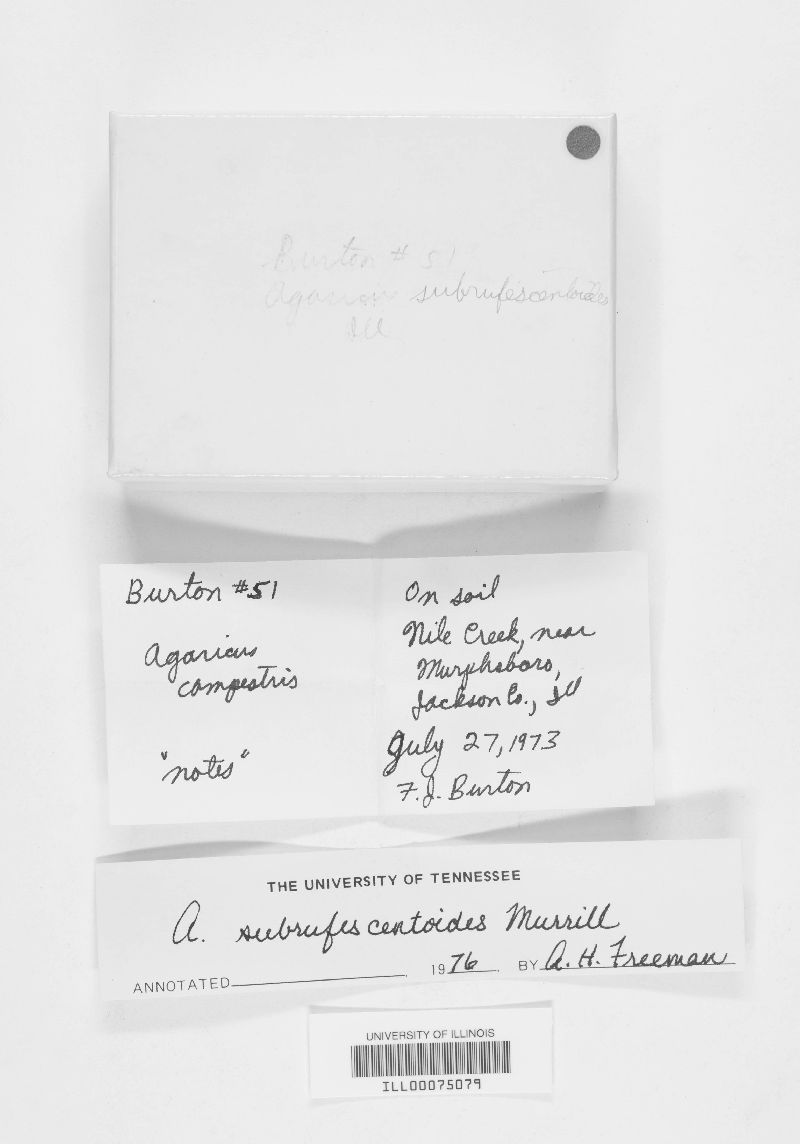 Burton # 51
Agaricus subrufescentoides
Ill
Burton #51
Agaricus
campestris
"notes"
On soil
Nile Creek, near
Murphsboro,
Jackson Co., Ill
July 27, 1973
F. J. Burton
THE UNIVERSITY OF TENNESSEE
A. subrufescentoides Murrill
ANNOTATED 1976 BY A. H. Freeman
UNIVERSITY OF ILLINOIS
ILL00075079